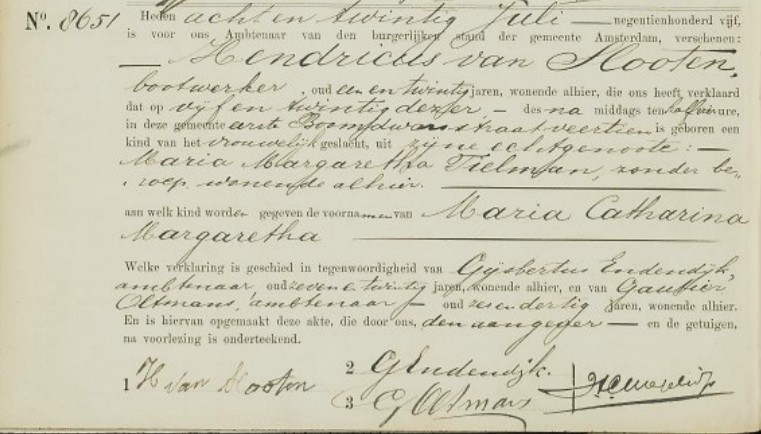 Nº. 8651 Heden acht en twintig Juli negentienhonderd vijf,
is voor ons Ambtenaar van den burgerlijken stand der gemeente Amsterdam, verschenen:
Hendricus van Slooten,
bootwerker, oud een en twintig jaren, wonende alhier, die ons heeft verklaard
dat op vijf en twintig dezer – des na middags ten half vier ure,
in deze gemeente eerste Boomdwarsstraat veertien is geboren een
kind van het vrouwelijk geslacht, uit zijne echtgenoote: –
Maria Margaretha Tielman, zonder be„
„roep, wonende alhier.
aan welk kind worden gegeven de voornamen van Maria Catharina
Margaretha
Welke verklaring is geschied in tegenwoordigheid van Gijsbertus Endendijk,
ambtenaar, oud zeven en twintig jaren, wonende alhier, en van Gautier
Oltmans, ambtenaar – oud zes en dertig jaren, wonende alhier.
En is hiervan opgemaakt deze akte, die door ons, den aangever — en de getuigen,
na voorlezing is onderteekend.
1 H van Slooten
2 GEndendijk.
3 GOltmans